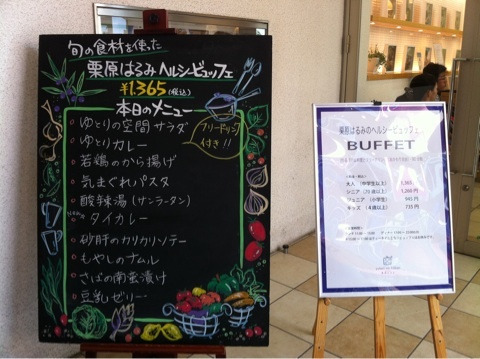 旬の食材を使った
栗原はるみヘルシービュッフェ
¥1.365(税込)
本日のメニュー
フリードリンク
付き!!
ゆとりの空間サラダ
ゆとりカレー
若鶏のから揚げ
気まぐれパスタ
酸辣湯(サンラータン)
タイカレー
砂肝のカリカリソテー
もやしのナムル
さばの南蛮漬け
豆乳ゼリー
栗原はるみのヘルシービュッフェ
BUFFET
大人(中学生以上) 1,365
シニア(70歳以上) 1,260円
ジュニア(小学生) 945円
キッズ(4歳以上) 735円